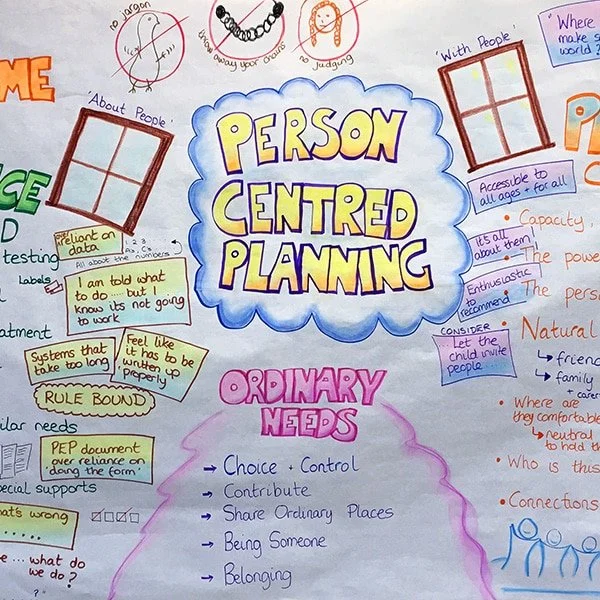 no jargon
throw away your chains
no judging
"Where
make s
world?
ME
'About People'
'With People'
PERSON
CENTRED
PLANNING
CE
D
testing
Labels
over
reliant on
data
1, 2, 3
All about the numbers
I am told what
to do .... but I
know its not going
to work
atment
Systems that
take too long
Feel like
it has to be
written up
'properly'
RULE BOUND
ilar needs
PEP document
over reliance on
'doing the form'
pecial supports
at's wrong
.....
e ... what do
we do?
Accessible to
all ages + for all
It's all
about them!
Enthusiastic
to
recommend
CONSIDER
Let the
child invite
people....
P
C
• Capacity,
• The powe
• The pers
• Natural
↳ frienc
↳ family
+ carer
• Where are
they comfortable
↳ neutral
to hold th
• Who is this
• Connections
ORDINARY
NEEDS
→ Choice + Control
→ Contribute
→ Share Ordinary Places
→ Being Someone
→ Belonging